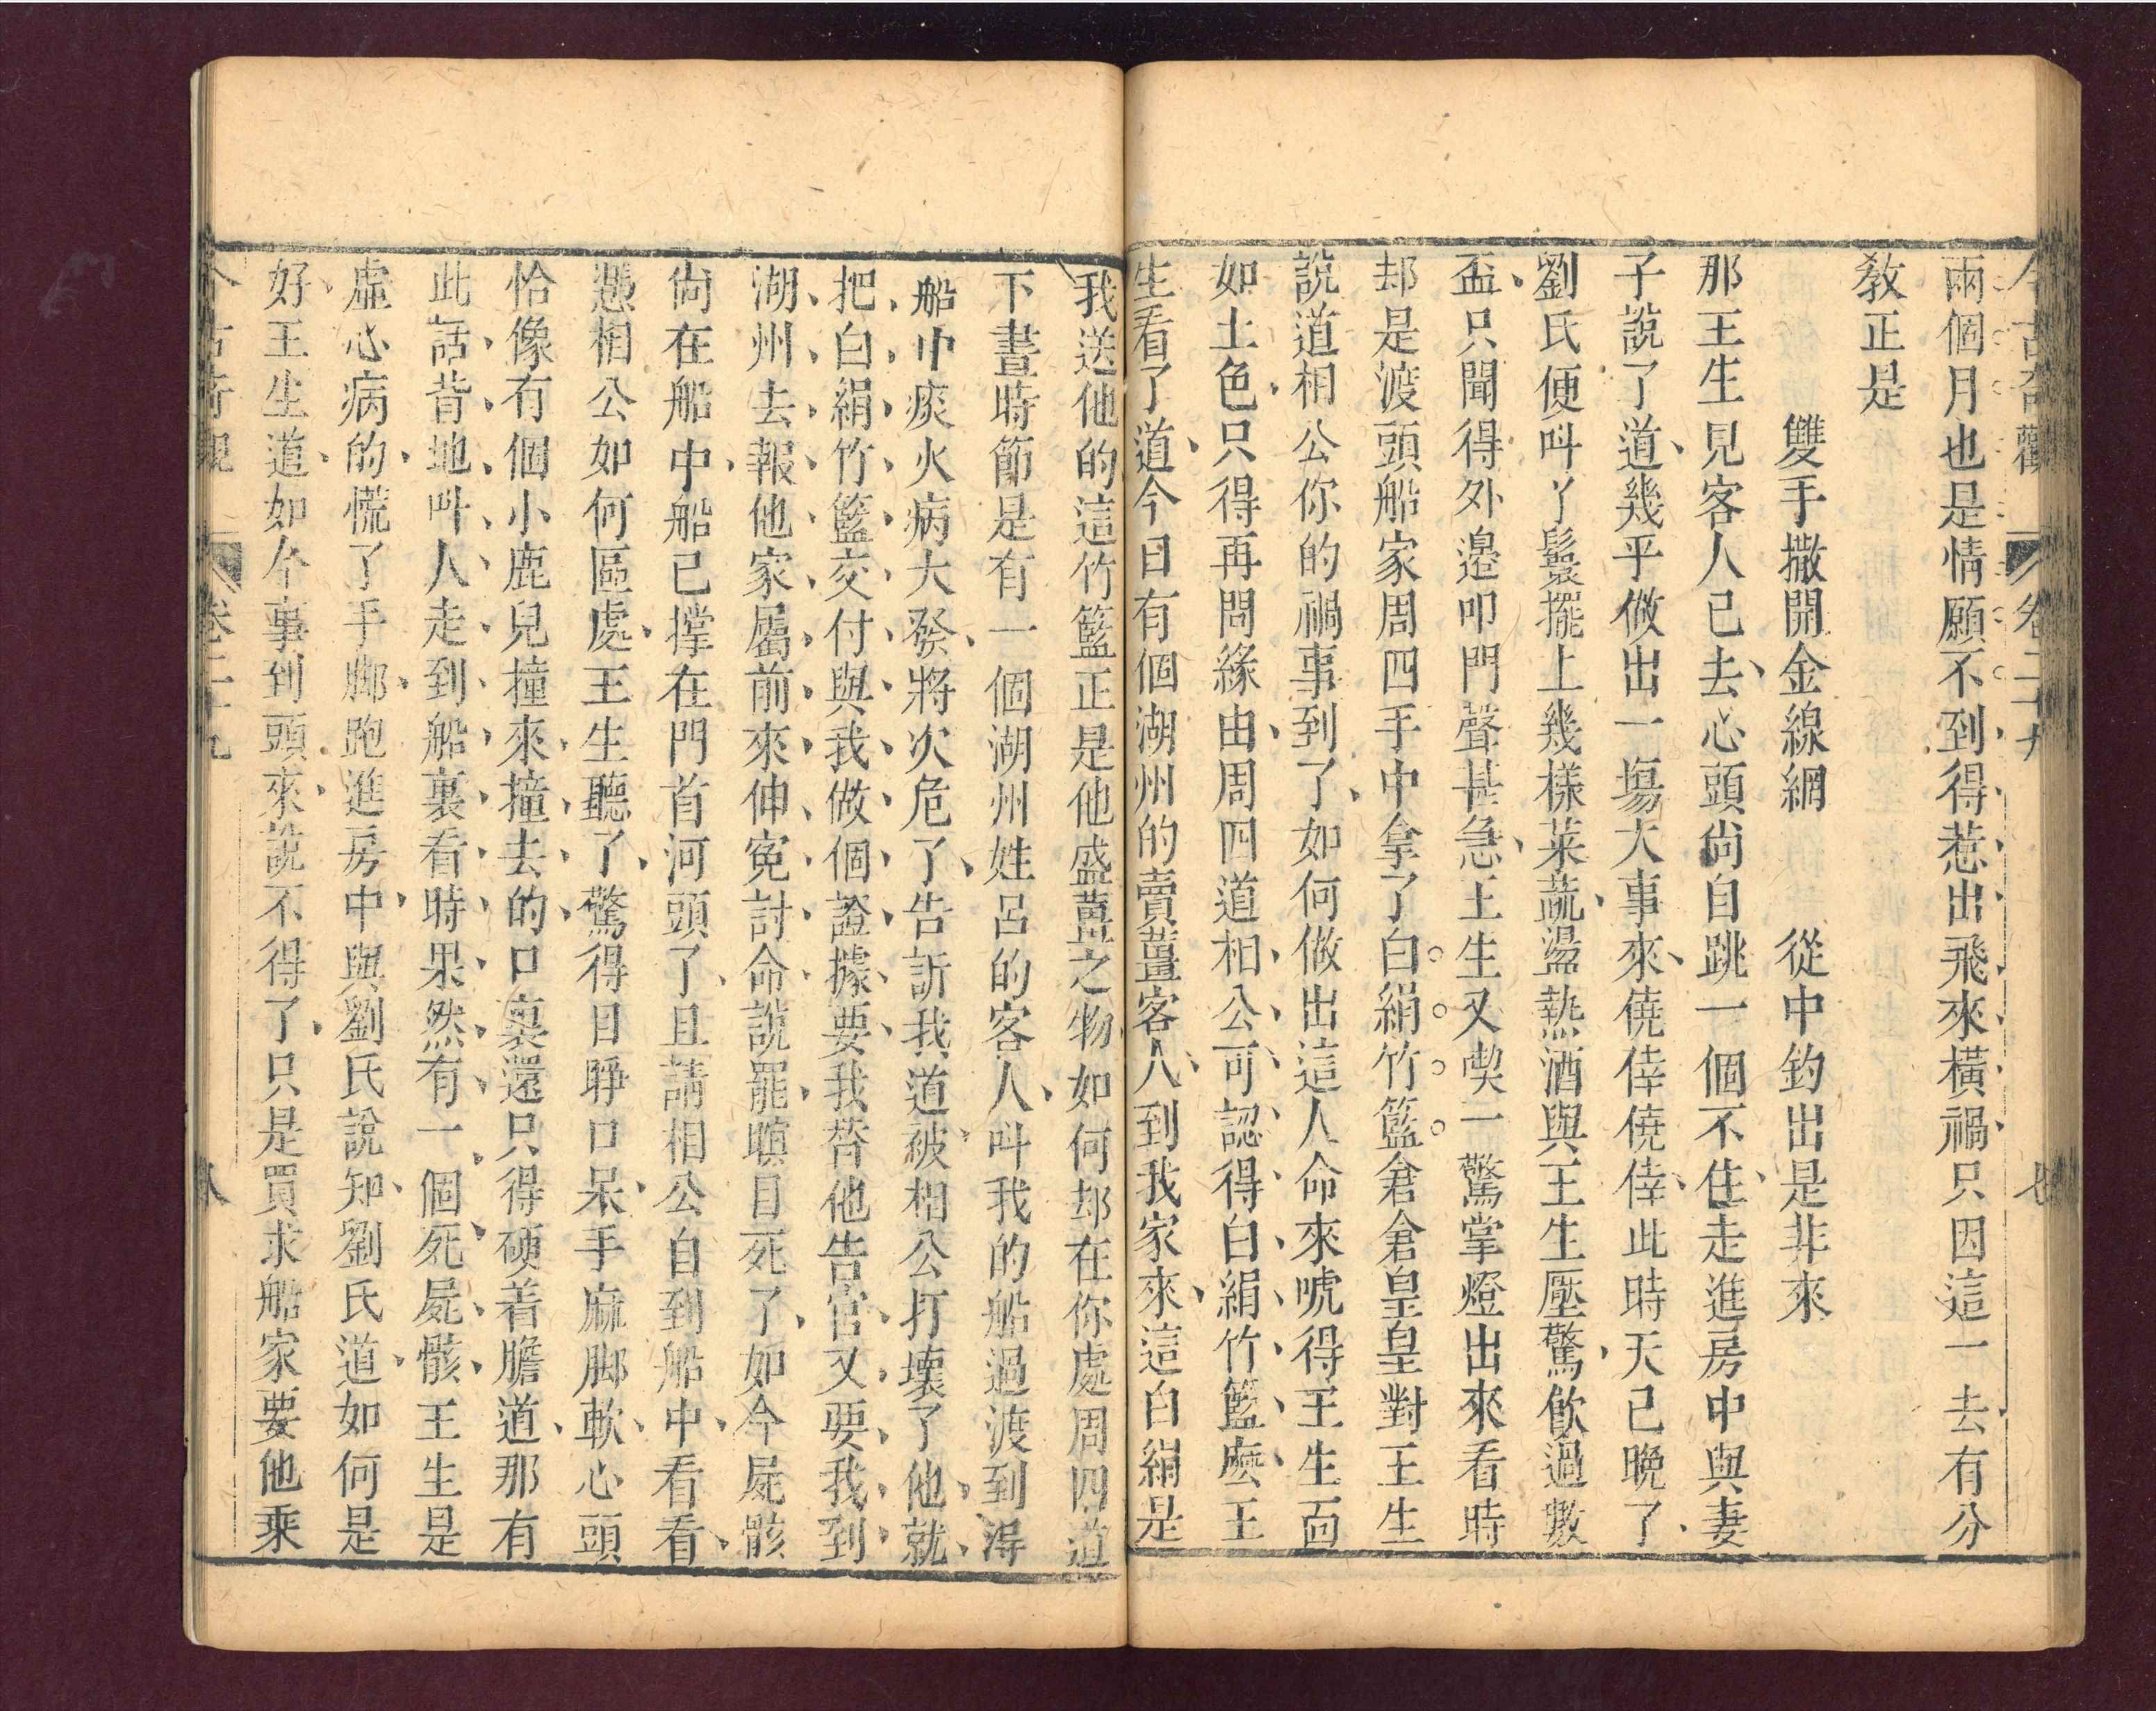 今古奇觀 卷二十九 七
兩個月也是情願不到得惹出飛來橫禍只因這一去有分
教正是
雙手撒開金線網 從中釣出是非來
那王生見客人已去、心頭尚自跳一個不住、走進房中與妻
子說了道、幾乎做出一塲大事來、僥倖僥倖、此時天已晚了、
劉氏便呌丫鬟擺上幾樣菜蔬、盪熱酒與王生壓驚、飲過數
盃、只聞得外邉叩門聲甚急、王生又喫一驚掌燈出來看時
却是渡頭船家周四手中拿了白絹竹籃倉倉皇皇對王生
說道相公你的禍事到了、如何做出這人命來唬得王生面
如土色、只得再問緣由、周四道相、公、可、認、得、白、絹、竹、籃、麽、王
生看了道、今日有個湖州的賣薑客人、到我家來、這白絹是
我送他的這竹籃正是他盛薑之物如何却在你處周四道
下晝時節是有一個湖州姓呂的客人、呌我的船過渡到得
船中痰火病大發、將次危了、告訴我道、被相公打壞了他、就、
把、白、絹、竹、籃、交、付、與、我、做、個、證、據、要、我、替、他、告、官、又、要、我、到、
湖、州、去、報、他、家、屬、前、來、伸、寃、討、命、說罷、瞑目死了、如今屍骸
尙在船中、船已撑在門首河頭了、且請相公自到船中、看看、
憑相公如何區處、王生聽了、驚得目睜口呆、手麻脚軟、心頭
恰像有個小鹿兒撞來、撞去、的、口裏還只得硬着膽道、那有
此話、背、地、呌、人、走、到、船、裏、看、時、果、然、有、一、個、死、屍、骸、王生是
虛心病的、慌了手脚、跑進房中、與劉氏說知、劉氏道、如何是
好、王生道、如今事到頭來、說不得了、只是買求船家要他乘
今古奇觀 卷二十九 八